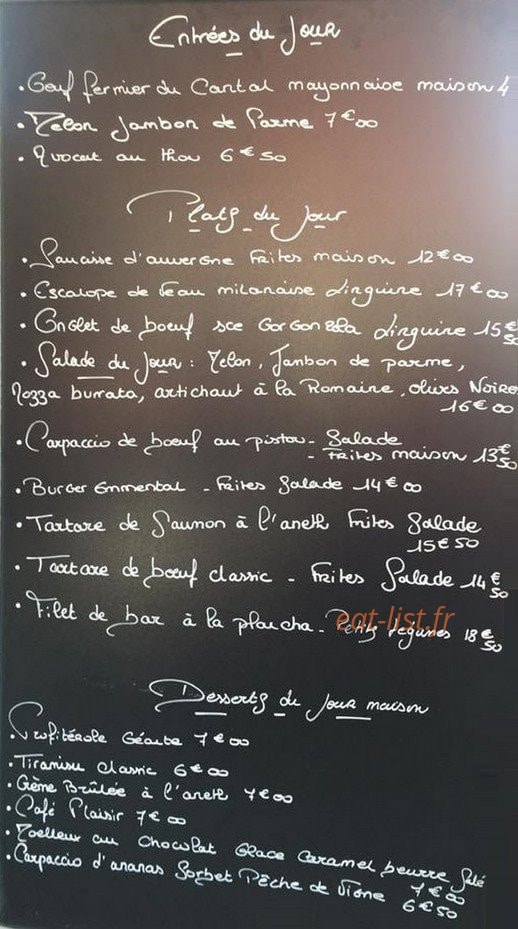 Entrées du Jour
• Oeuf fermier du Cantal mayonnaise maison 4
• Melon Jambon de Parme 7€00
• Avocat au thon 6€50
Plats du Jour
• Saucisse d'auvergne Frites maison 12€00
• Escalope de Veau milanaise Linguine 17€00
• Onglet de boeuf sce Gorgonzola Linguine 15€50
• Salade du Jour : Melon, Jambon de parme,
Mozza burrata, artichaut à la Romaine, olives Noires
16€00
• Carpaccio de boeuf au pistou - Salade
- Frites maison 13€50
• Burger Emmental - Frites Salade 14€00
• Tartare de Saumon à l'aneth Frites Salade
15€50
• Tartare de boeuf classic - Frites Salade 14€50
• Filet de bar à la plancha - Petits légumes 18€50
eat-list.fr
Desserts du Jour maison
• Profiterole Géante 7€00
• Tiramisu classic 6€00
• Crème Brûlée à l'aneth 7€00
• Café Plaisir 7€00
• Moelleux au Chocolat Glace Caramel beurre Salé
7€00
• Carpaccio d'ananas Sorbet Pêche de Vigne 6€50